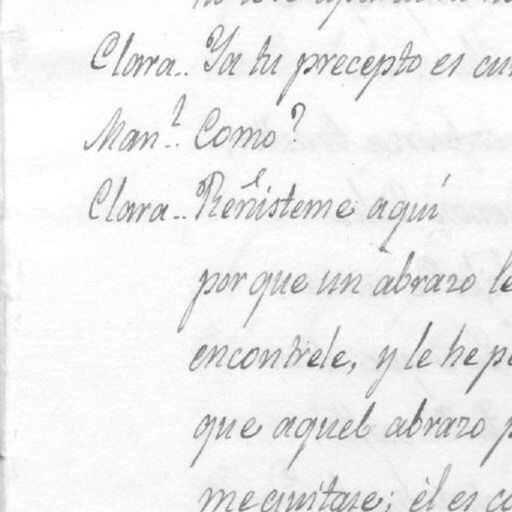 Clara.. Ya tu precepto es cu
Man.l. Como?
Clara.. Reñisteme aquí
porque un abrazo le
encontrele, y le he pe
que aquel abrazo p
mequitase; èl es co